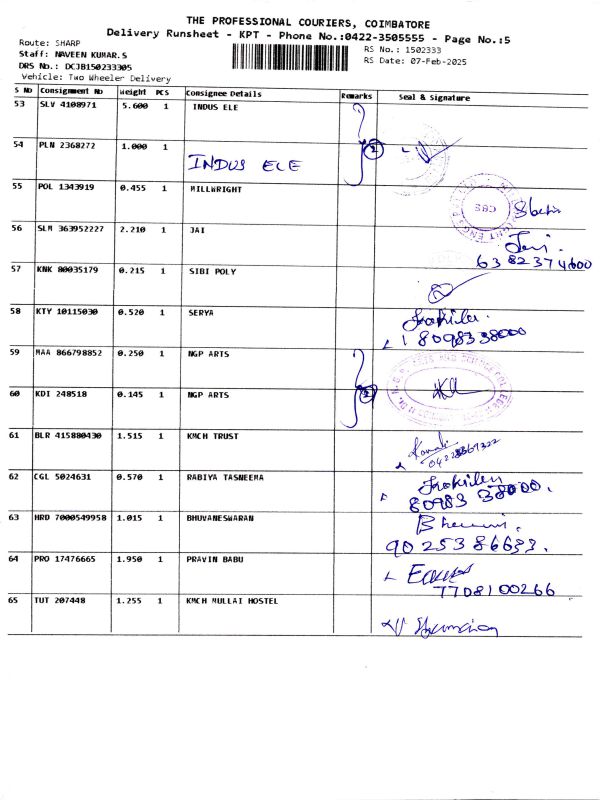 THE PROFESSIONAL COURIERS, COIMBATORE
Delivery Runsheet - KPT - Phone No.:0422-3505555 - Page No.:5
Route: SHARP
Staff: NAVEEN KUMAR.S
DRS No.: DCJB150233305
Vehicle: Two Wheeler Delivery
RS No.: 1502333
RS Date: 07-Feb-2025
S No Consignment No Weight PCS Consignee Details Remarks Seal & Signature
53 SLV 4108971 5.600 1 INDUS ELE
54 PLN 2368272 1.000 1 2
INDUS ELE
55 POL 1343919 0.455 1 MILLWRIGHT
CBS
56 SLM 363952227 2.210 1 JAI
6382374600
57 KNK 80035179 0.215 1 SIBI POLY
58 KTY 10115030 0.520 1 SERYA
8098338000
59 MAA 866798852 0.250 1 NGP ARTS
60 KDI 248518 0.145 1 NGP ARTS 2
61 BLR 415880430 1.515 1 KMCH TRUST
62 CGL 5024631 0.570 1 RABIYA TASNEEMA
80983 38000.
63 HRD 7000549958 1.015 1 BHUVANESWARAN
9025386633.
64 PRO 17476665 1.950 1 PRAVIN BABU
7708100266
65 TUT 207448 1.255 1 KMCH MULLAI HOSTEL